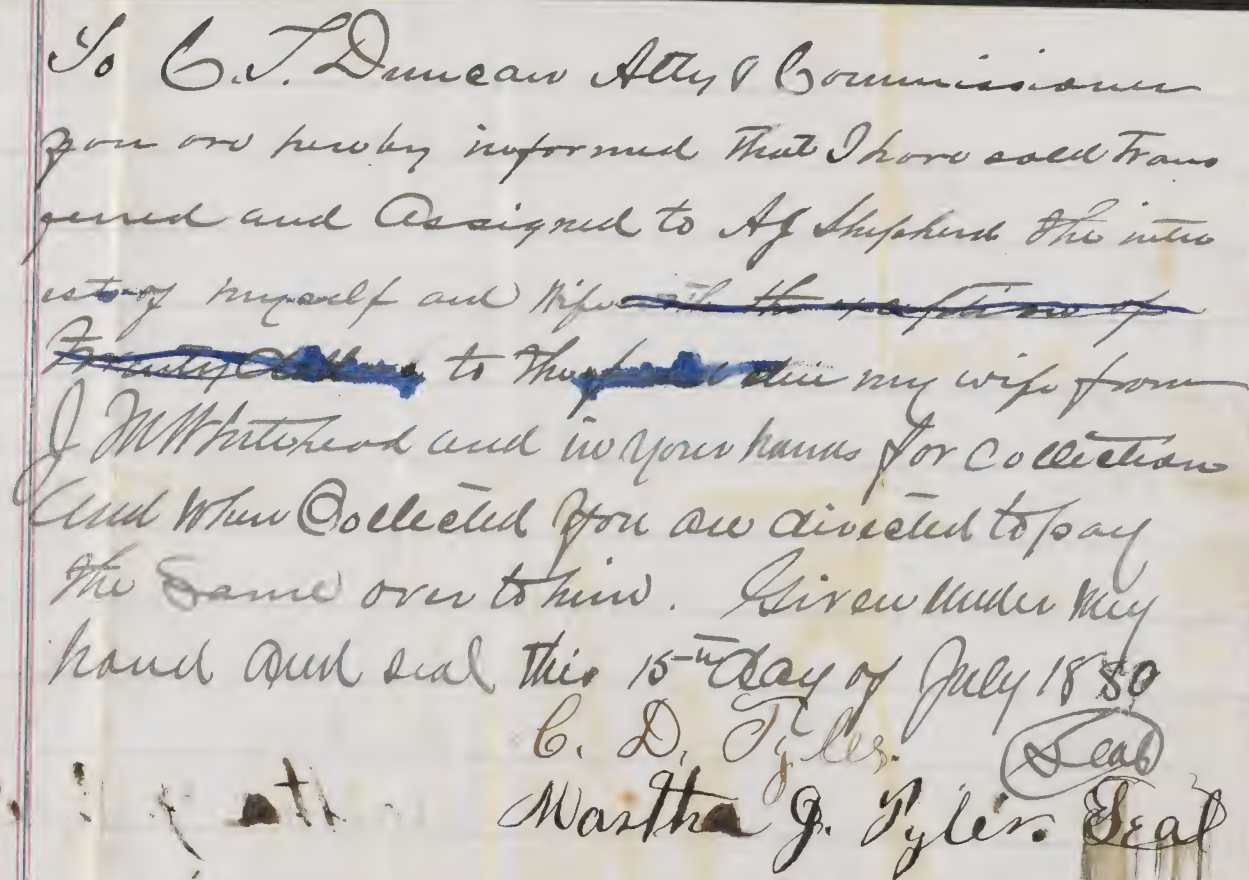 To C. T. Duncan Atty & Commissioner
you are hereby informed that I have sold Trans
ferred and Assigned to AJ Shepherd the inter
est of myself and Wife with the exception of
Twenty to the due my wife from
J M Whitehead and in your hands for collection
And When Collected You are directed to pay
the Same over to him. Given under my
hand and seal this 15th day of July 1880
C. D. Tyler. Seal
Martha J. Tyler. Seal